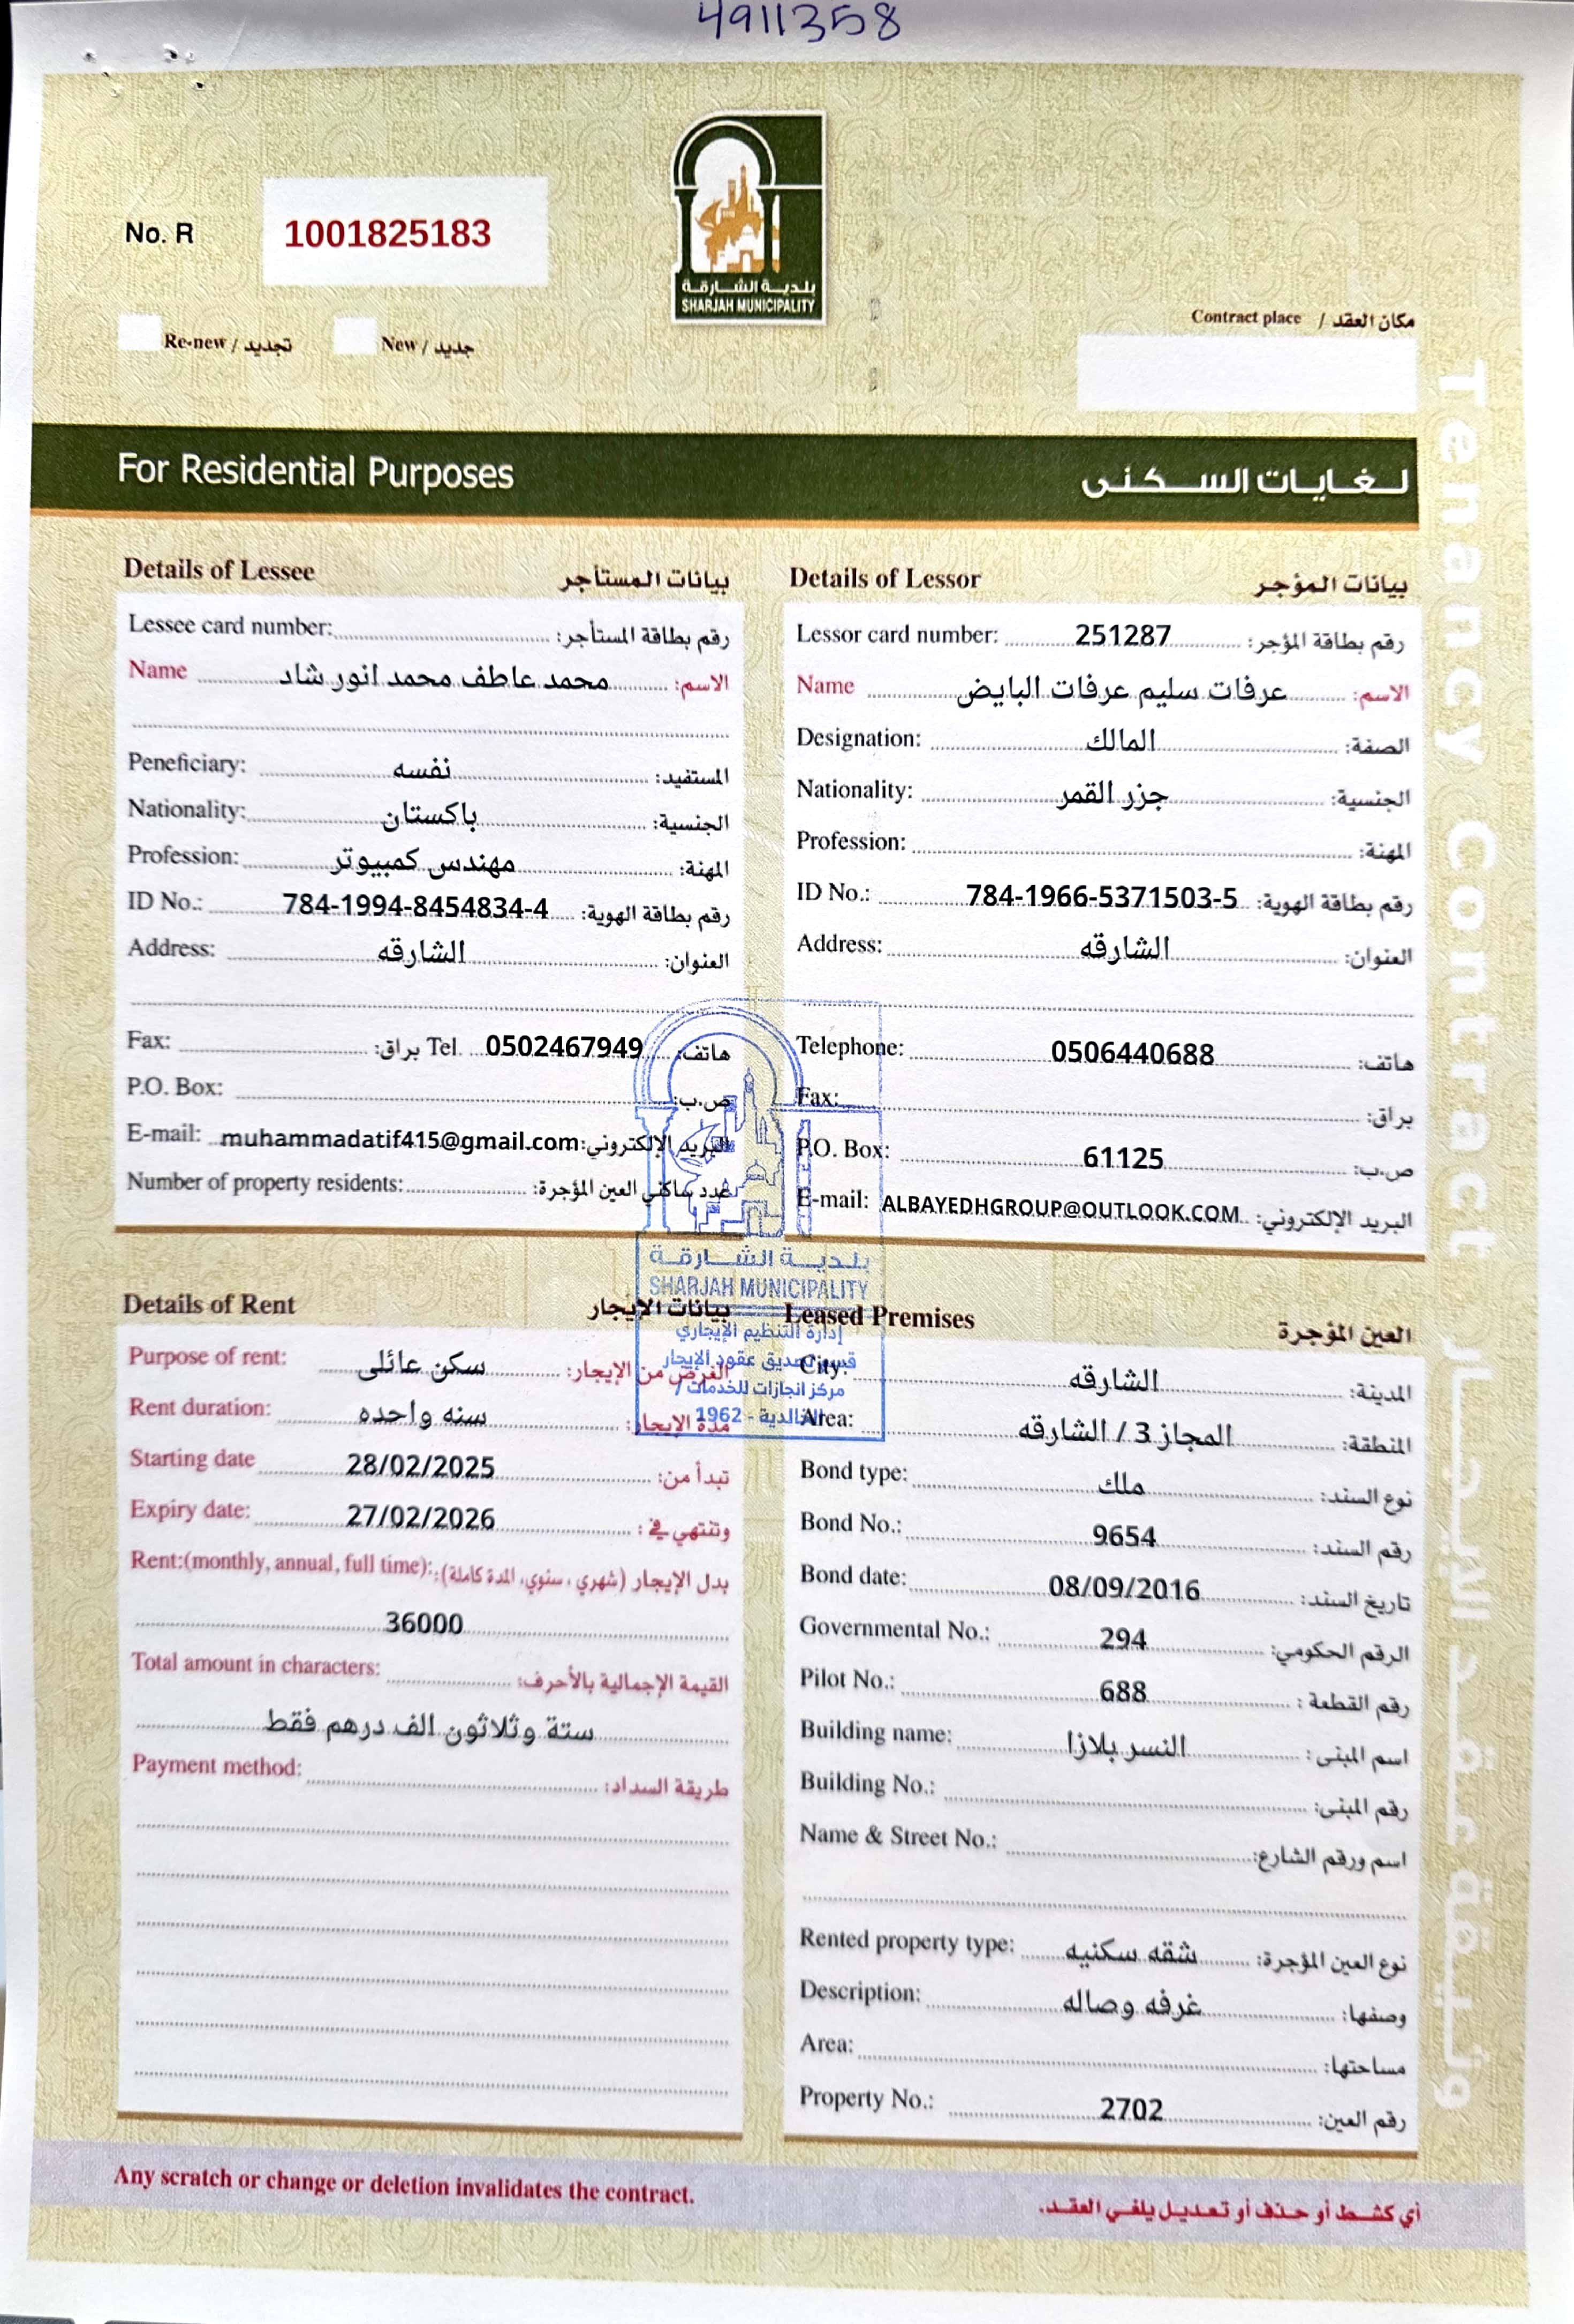 4911358
No. R 1001825183
بلدية الشارقة
SHARJAH MUNICIPALITY
Re-new / تجديد New / جديد
Contract place / مكان العقد
For Residential Purposes لغايات السكنى
Tenancy Contract
Details of Lessee بيانات المستأجر
Lessee card number: رقم بطاقة المستأجر:
Name محمد عاطف محمد انور شاد الاسم:
Peneficiary: نفسه المستفيد:
Nationality: باكستان الجنسية:
Profession: مهندس كمبيوتر المهنة:
ID No.: 784-1994-8454834-4 رقم بطاقة الهوية:
Address: الشارقه العنوان:
Fax: براق: Tel 0502467949 هاتف:
P.O. Box: ص.ب:
E-mail: muhammadatif415@gmail.com البريد الإلكتروني:
Number of property residents: عدد ساكني العين المؤجرة:
Details of Lessor بيانات المؤجر
Lessor card number: 251287 رقم بطاقة المؤجر:
Name عرفات سليم عرفات البايض الاسم:
Designation: المالك الصفة:
Nationality: جزر القمر الجنسية:
Profession: المهنة:
ID No.: 784-1966-5371503-5 رقم بطاقة الهوية:
Address: الشارقه العنوان:
Telephone: 0506440688 هاتف:
Fax: براق:
P.O. Box: 61125 ص.ب:
E-mail: ALBAYEDHGROUP@OUTLOOK.COM البريد الإلكتروني:
بلدية الشارقة
SHARJAH MUNICIPALITY
إدارة التنظيم الإيجاري
قسم تصديق عقود الإيجار
مركز انجازات للخدمات /
الخالدية - 1962
Details of Rent بيانات الإيجار
Purpose of rent: سكن عائلى الغرض من الإيجار:
Rent duration: سنه واحده مدة الإيجار:
Starting date 28/02/2025 تبدأ من:
Expiry date: 27/02/2026 وتنتهي في:
Rent:(monthly, annual, full time): بدل الإيجار (شهري، سنوي، المدة كاملة):
36000
Total amount in characters: القيمة الإجمالية بالأحرف:
ستة وثلاثون الف درهم فقط
Payment method: طريقة السداد:
Leased Premises العين المؤجرة
City: الشارقه المدينة:
Area: المجاز 3 / الشارقه المنطقة:
Bond type: ملك نوع السند:
Bond No.: 9654 رقم السند:
Bond date: 08/09/2016 تاريخ السند:
Governmental No.: 294 الرقم الحكومي:
Pilot No.: 688 رقم القطعة:
Building name: النسر بلازا اسم المبنى:
Building No.: رقم المبنى:
Name & Street No.: اسم ورقم الشارع:
Rented property type: شقه سكنيه نوع العين المؤجرة:
Description: غرفه وصاله وصفها:
Area: مساحتها:
Property No.: 2702 رقم العين:
Any scratch or change or deletion invalidates the contract. أي كشط أو حذف أو تعديل يلغي العقد.